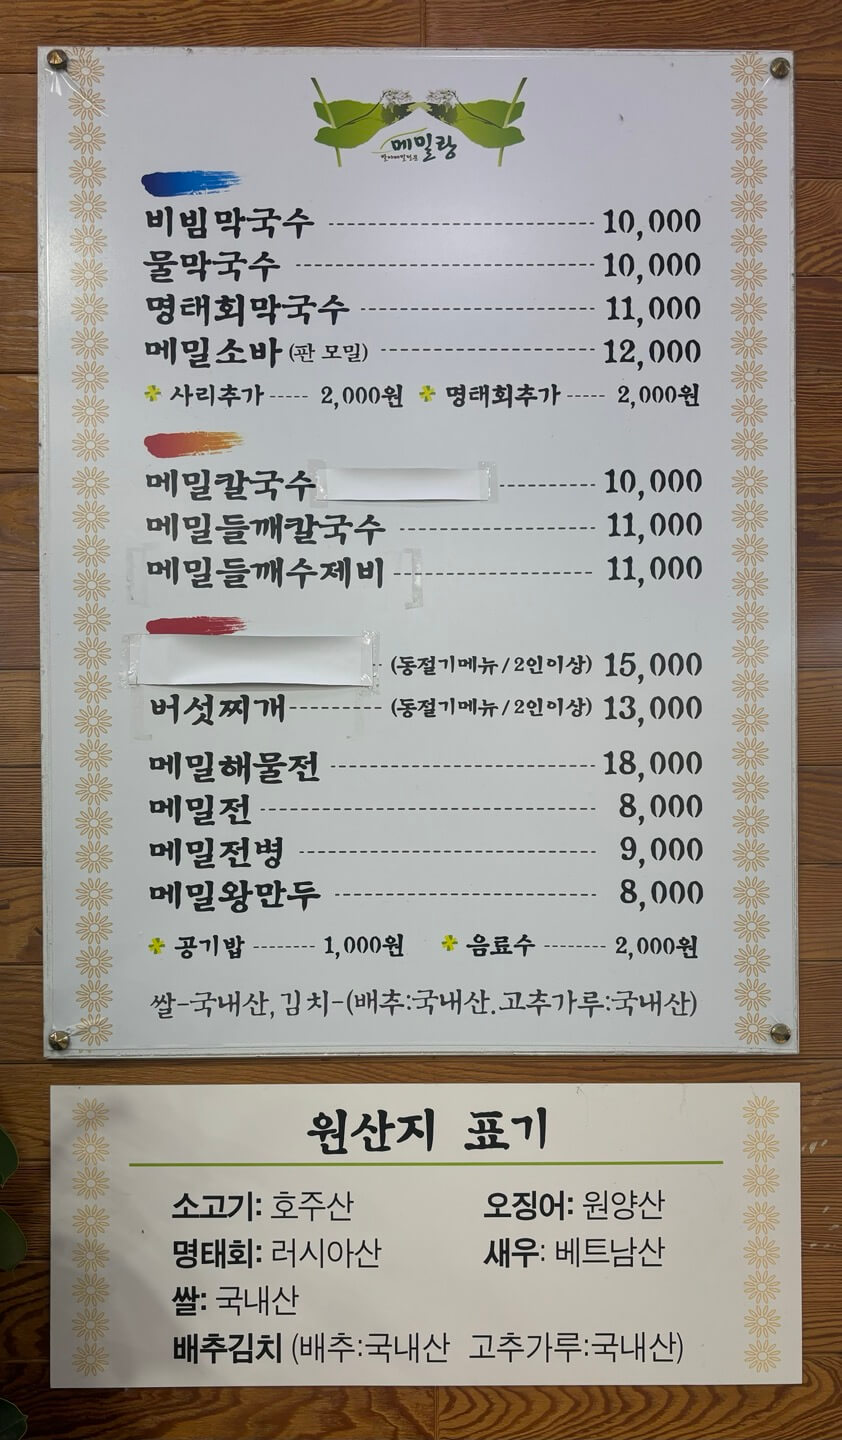 메밀랑
비빔막국수 10,000
물막국수 10,000
명태회막국수 11,000
메밀소바 (판 모밀) 12,000
사리추가 2,000원 명태회추가 2,000원
메밀칼국수 10,000
메밀들깨칼국수 11,000
메밀들깨수제비 11,000
(동절기메뉴/2인이상) 15,000
버섯찌개 (동절기메뉴/2인이상) 13,000
메밀해물전 18,000
메밀전 8,000
메밀전병 9,000
메밀왕만두 8,000
공기밥 1,000원 음료수 2,000원
쌀-국내산, 김치-(배추:국내산.고추가루:국내산)
원산지 표기
소고기: 호주산 오징어: 원양산
명태회: 러시아산 새우: 베트남산
쌀: 국내산
배추김치 (배추:국내산 고추가루:국내산)